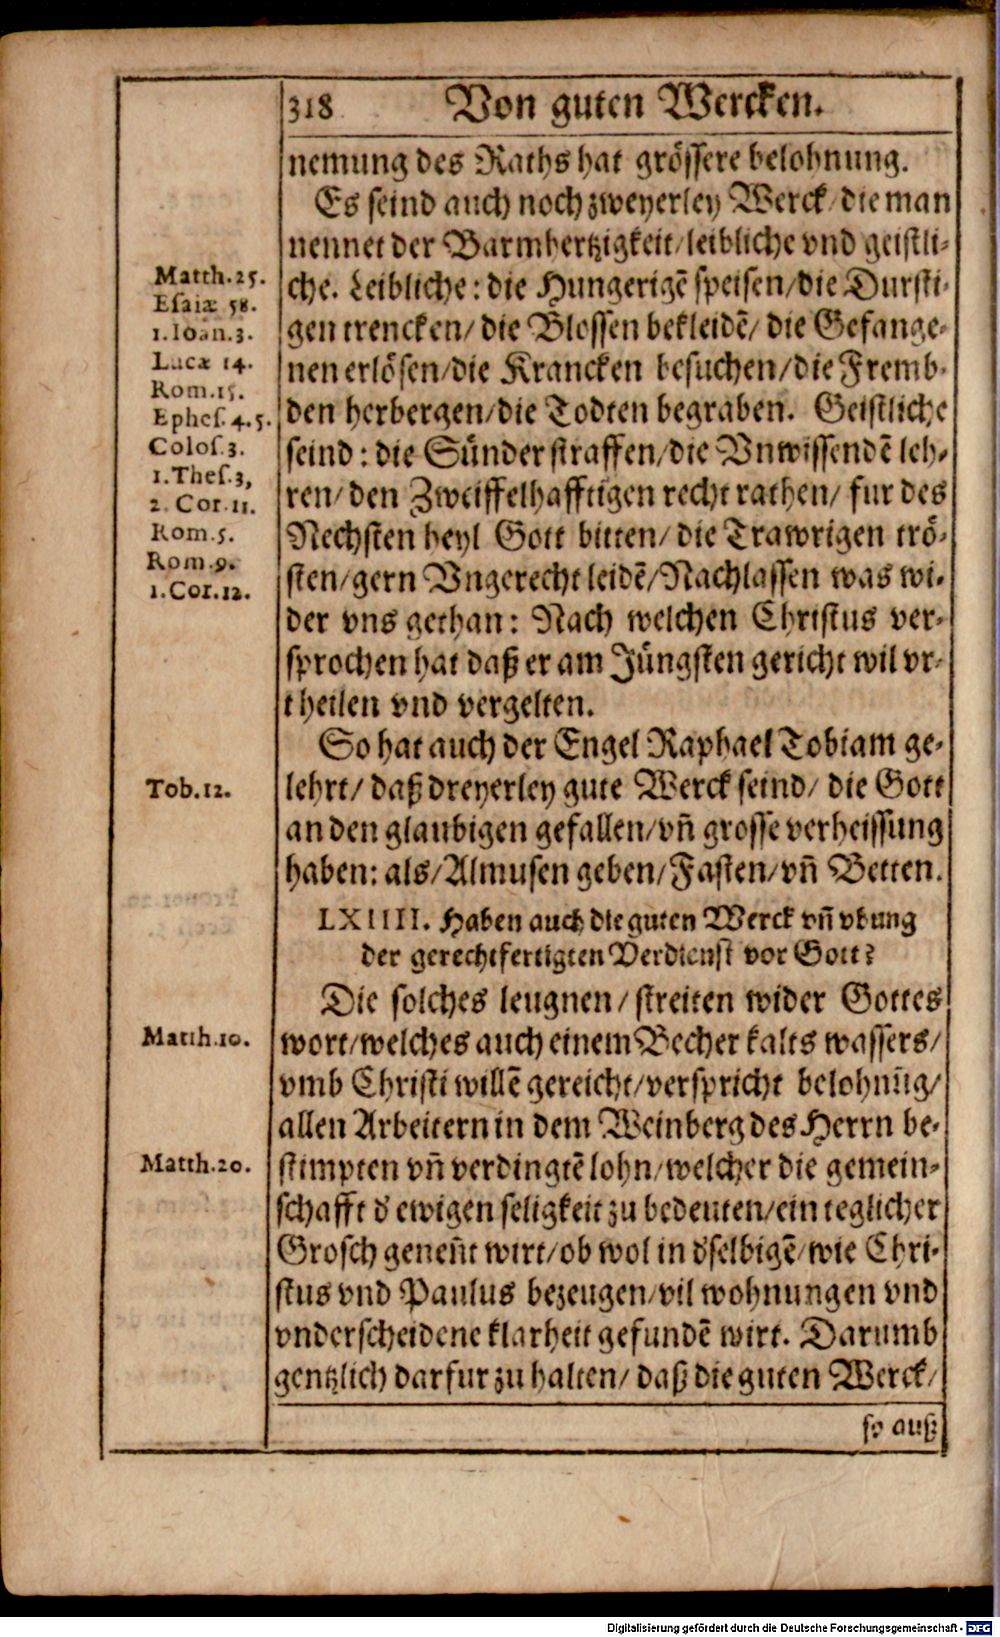 318 Von guten Wercken.
nemung des Raths hat grössere belohnung.
Es seind auch noch zweyerley Werck/ die man
nennet der Barmhertzigkeit/ leibliche vnd geistli-
che. Leibliche: die Hungerigē speisen/ die Dursti-
gen trencken/ die Blossen bekleidē/ die Gefange-
nen erlösen/ die Krancken besuchen/ die Fremb-
den herbergen/ die Todten begraben. Geistliche
seind: die Sünder straffen/ die Vnwissendē leh-
ren/ den Zweiffelhafftigen recht rathen/ fur des
Nechsten heyl Gott bitten/ die Trawrigen trö-
sten/ gern Vngerecht leidē/ Nachlassen was wi-
der vns gethan: Nach welchen Christus ver-
sprochen hat daß er am Jüngsten gericht wil vr-
theilen vnd vergelten.
Matth.25.
Esaiæ 58.
1.Ioan.3.
Lucæ 14.
Rom.15.
Ephes.4.5.
Colos.3.
1.Thes.3,
2. Cor.11.
Rom.5.
Rom.9.
1.Cor.12.
So hat auch der Engel Raphael Tobiam ge-
lehrt/ daß dreyerley gute Werck seind/ die Gott
an den glaubigen gefallen/ vñ grosse verheissung
haben: als/ Almusen geben/ Fasten/ vñ Betten.
Tob.12.
LXIIII. Haben auch die guten Werck vñ vbung
der gerechtfertigten Verdienst vor Gott?
Die solches leugnen/ streiten wider Gottes
wort/ welches auch einem Becher kalts wassers/
vmb Christi willē gereicht/ verspricht belohnūg/
allen Arbeitern in dem Weinberg des Herrn be-
stimpten vñ verdingtē lohn/ welcher die gemein-
schafft d' ewigen seligkeit zu bedeuten/ ein teglicher
Grosch geneñt wirt/ ob wol in d'selbigē/ wie Chri-
stus vnd Paulus bezeugen/ vil wohnungen vnd
vnderscheidene klarheit gefundē wirt. Darumb
gentzlich darfur zu halten/ daß die guten Werck/
Matth.10.
Matth.20.
so auß
Digitalisierung gefördert durch die Deutsche Forschungsgemeinschaft - DFG